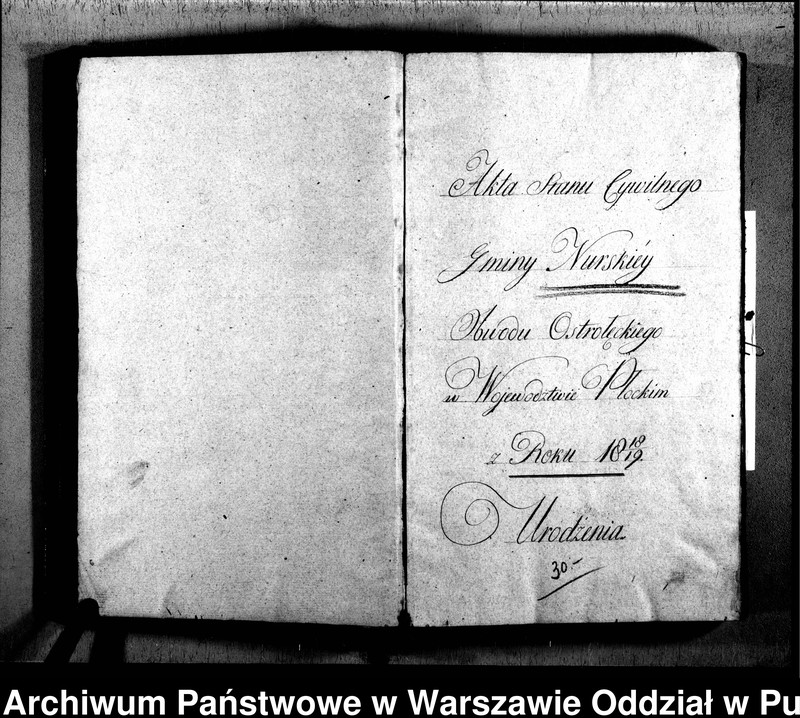 Akta Stanu Cywilnego
Gminy Nurskiéy
Obwodu Ostrołęckiego
w Województwie Płockim
z Roku 18 18/19
Urodzenia
30.-
Archiwum Państwowe w Warszawie Oddział w Pu